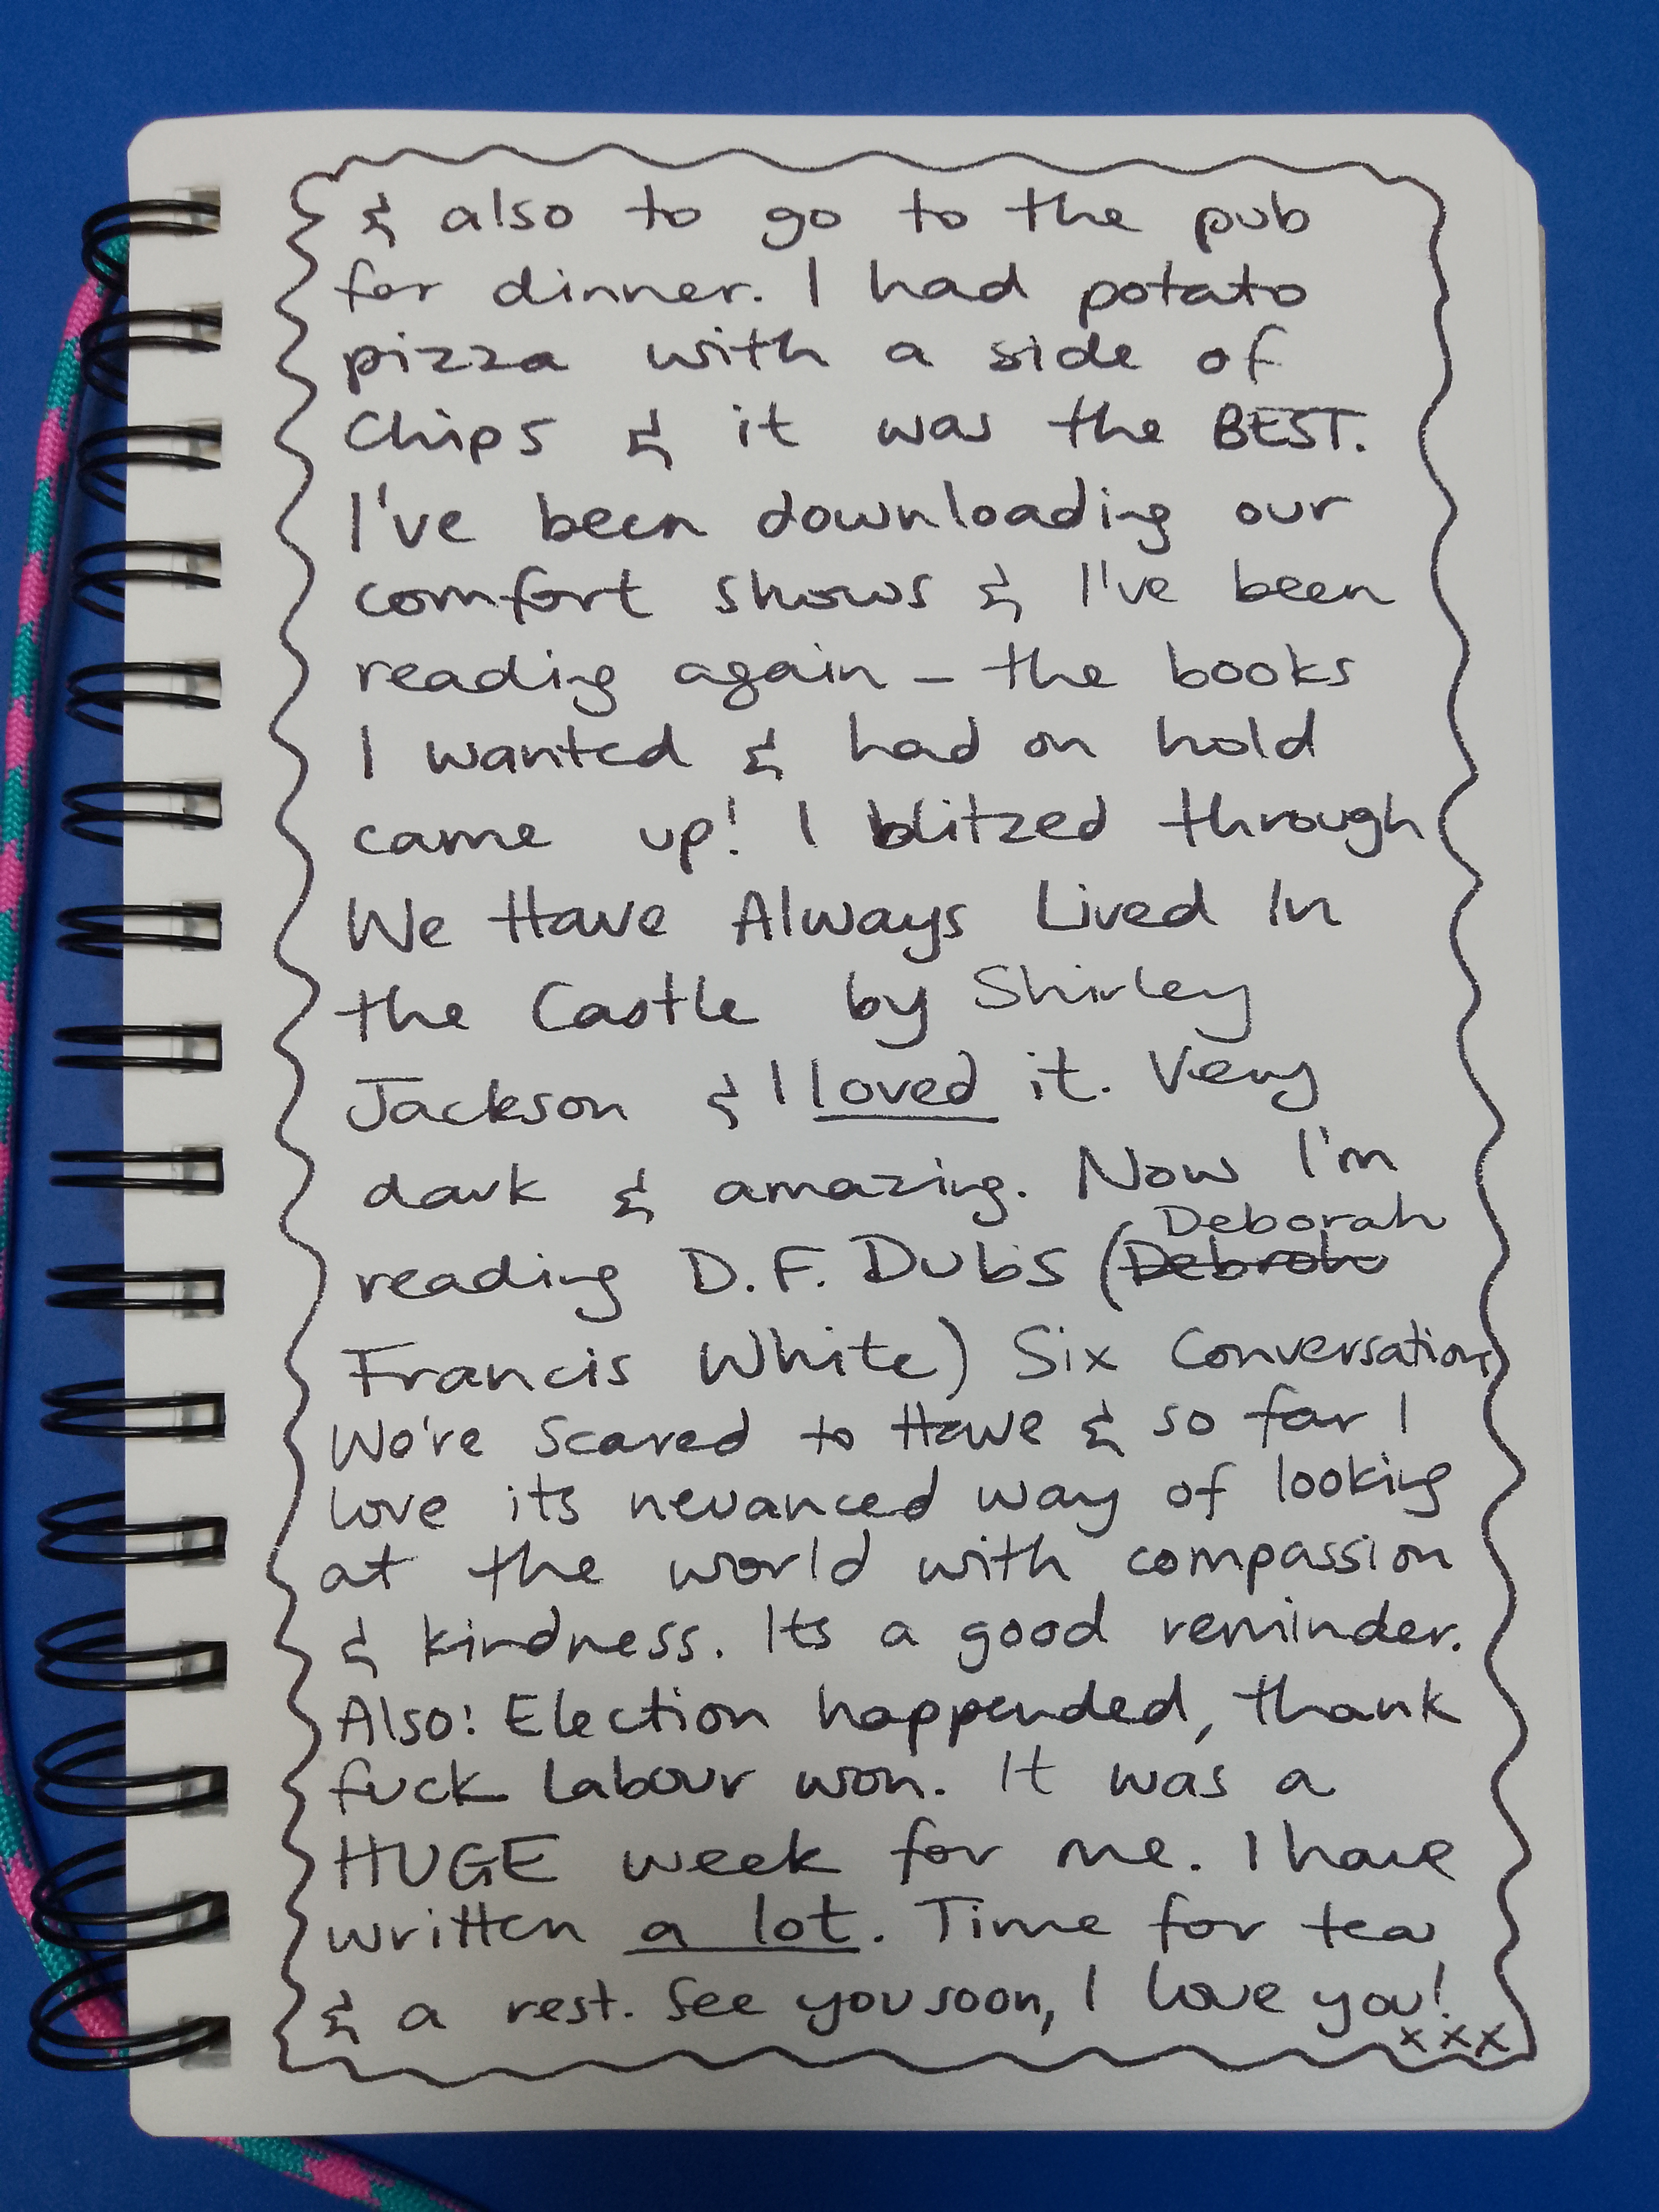 & also to go to the pub
for dinner. I had potato
pizza with a side of
Chips & it was the BEST.
I've been downloading our
comfort shows & I've been
reading again - the books
I wanted & had on hold
came up! I blitzed through
We Have Always Lived In
the Castle by Shirley
Jackson & I loved it. Very
dark & amazing. Now I'm
Deborah
reading D.F. Dubs (Debroh
Francis White) Six Conversations
We're Scared to Have & so far I
love its neuanced way of looking
at the world with compassion
& kindness. Its a good reminder.
Also: Election happended, thank
fuck Labour won. It was a
HUGE week for me. I have
written a lot. Time for tea
& a rest. See you soon, I love you!
xxx